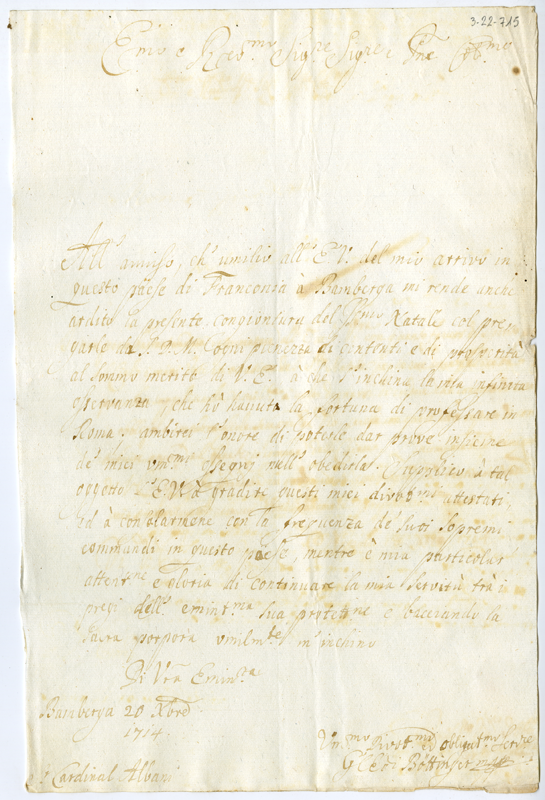 3-22-715
Em.mo e Rev.mo Sig.re Sig.re e Pne
All' auuiso, ch' umilio all' E. V. del mio arriuo in
questo paese di Franconia à Bamberga mi rende anche
ardito la presente congiontura del SSmo Natale col pre,
garle da S. D. M. ogni pienezza di contenti e di prosperità
al sommo merito di V. E. à che s' inchina la mia infinita
osseruanza, che hò hauuta la fortuna di professare in
Roma. ambirei l' onore di poterle dar proue insieme
de' miei um.mi ossequj nell' obedirla. Supplico à tal
oggetto l' E. V. à gradire questi miei attestati,
ed à consolarmene con la frequenza de' suoi supremi
commandi in questo paese, mentre è mia particolar
attent.ne e gloria di continuare la mia seruitù trà i
pregi dell' emint.ma sua protett.ne e baciando la
sacra porpora umilm.te m' inchino
Di Vra Emin.za
Bamberga 20 Xbre
1714
Um.mo Diuot.mo ed obligat.mo Serit.re
di Bottinger
Cardinal Albani